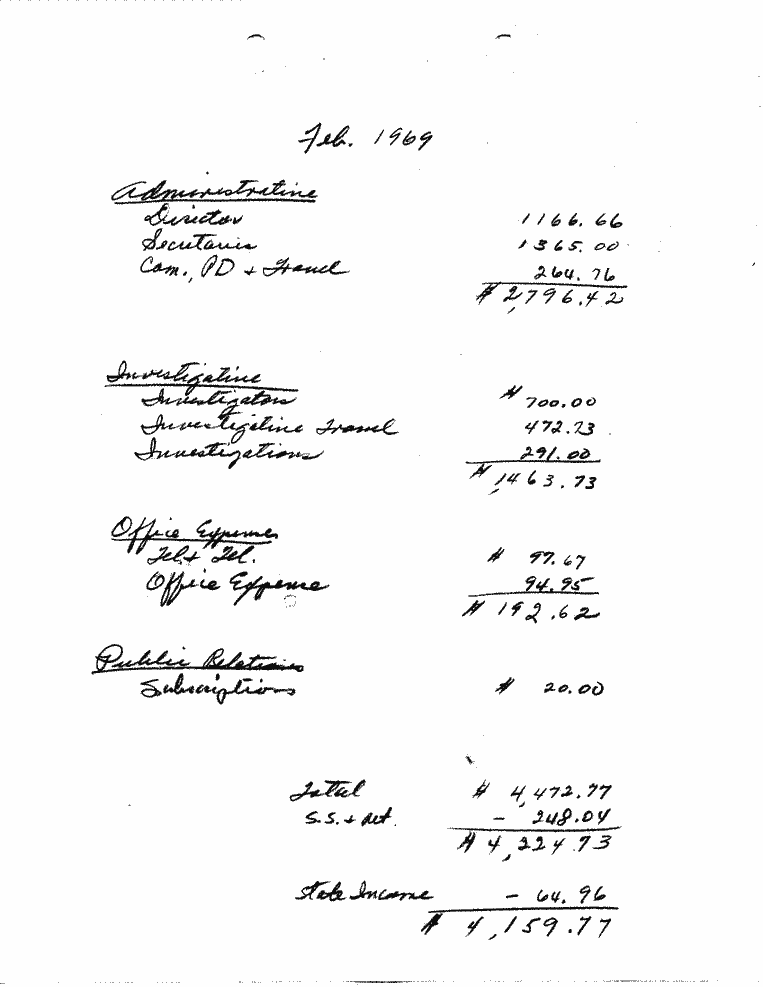 Feb. 1969
Administrative
Director 1166.66
Secretaries 1365.00
Com., PD + Travel 264.76
$ 2,796.42
Investigative
Investigators $ 700.00
Investigative Travel 472.73
Investigations 291.00
$ 1,463.73
Office Expenses
Tel + Tel. $ 97.67
Office Expense 94.95
$ 192.62
Public Relations
Subscriptions $ 20.00
Total $ 4,472.77
S.S. + Ret. - 248.04
$ 4,224.73
State Income - 64.96
$ 4,159.77